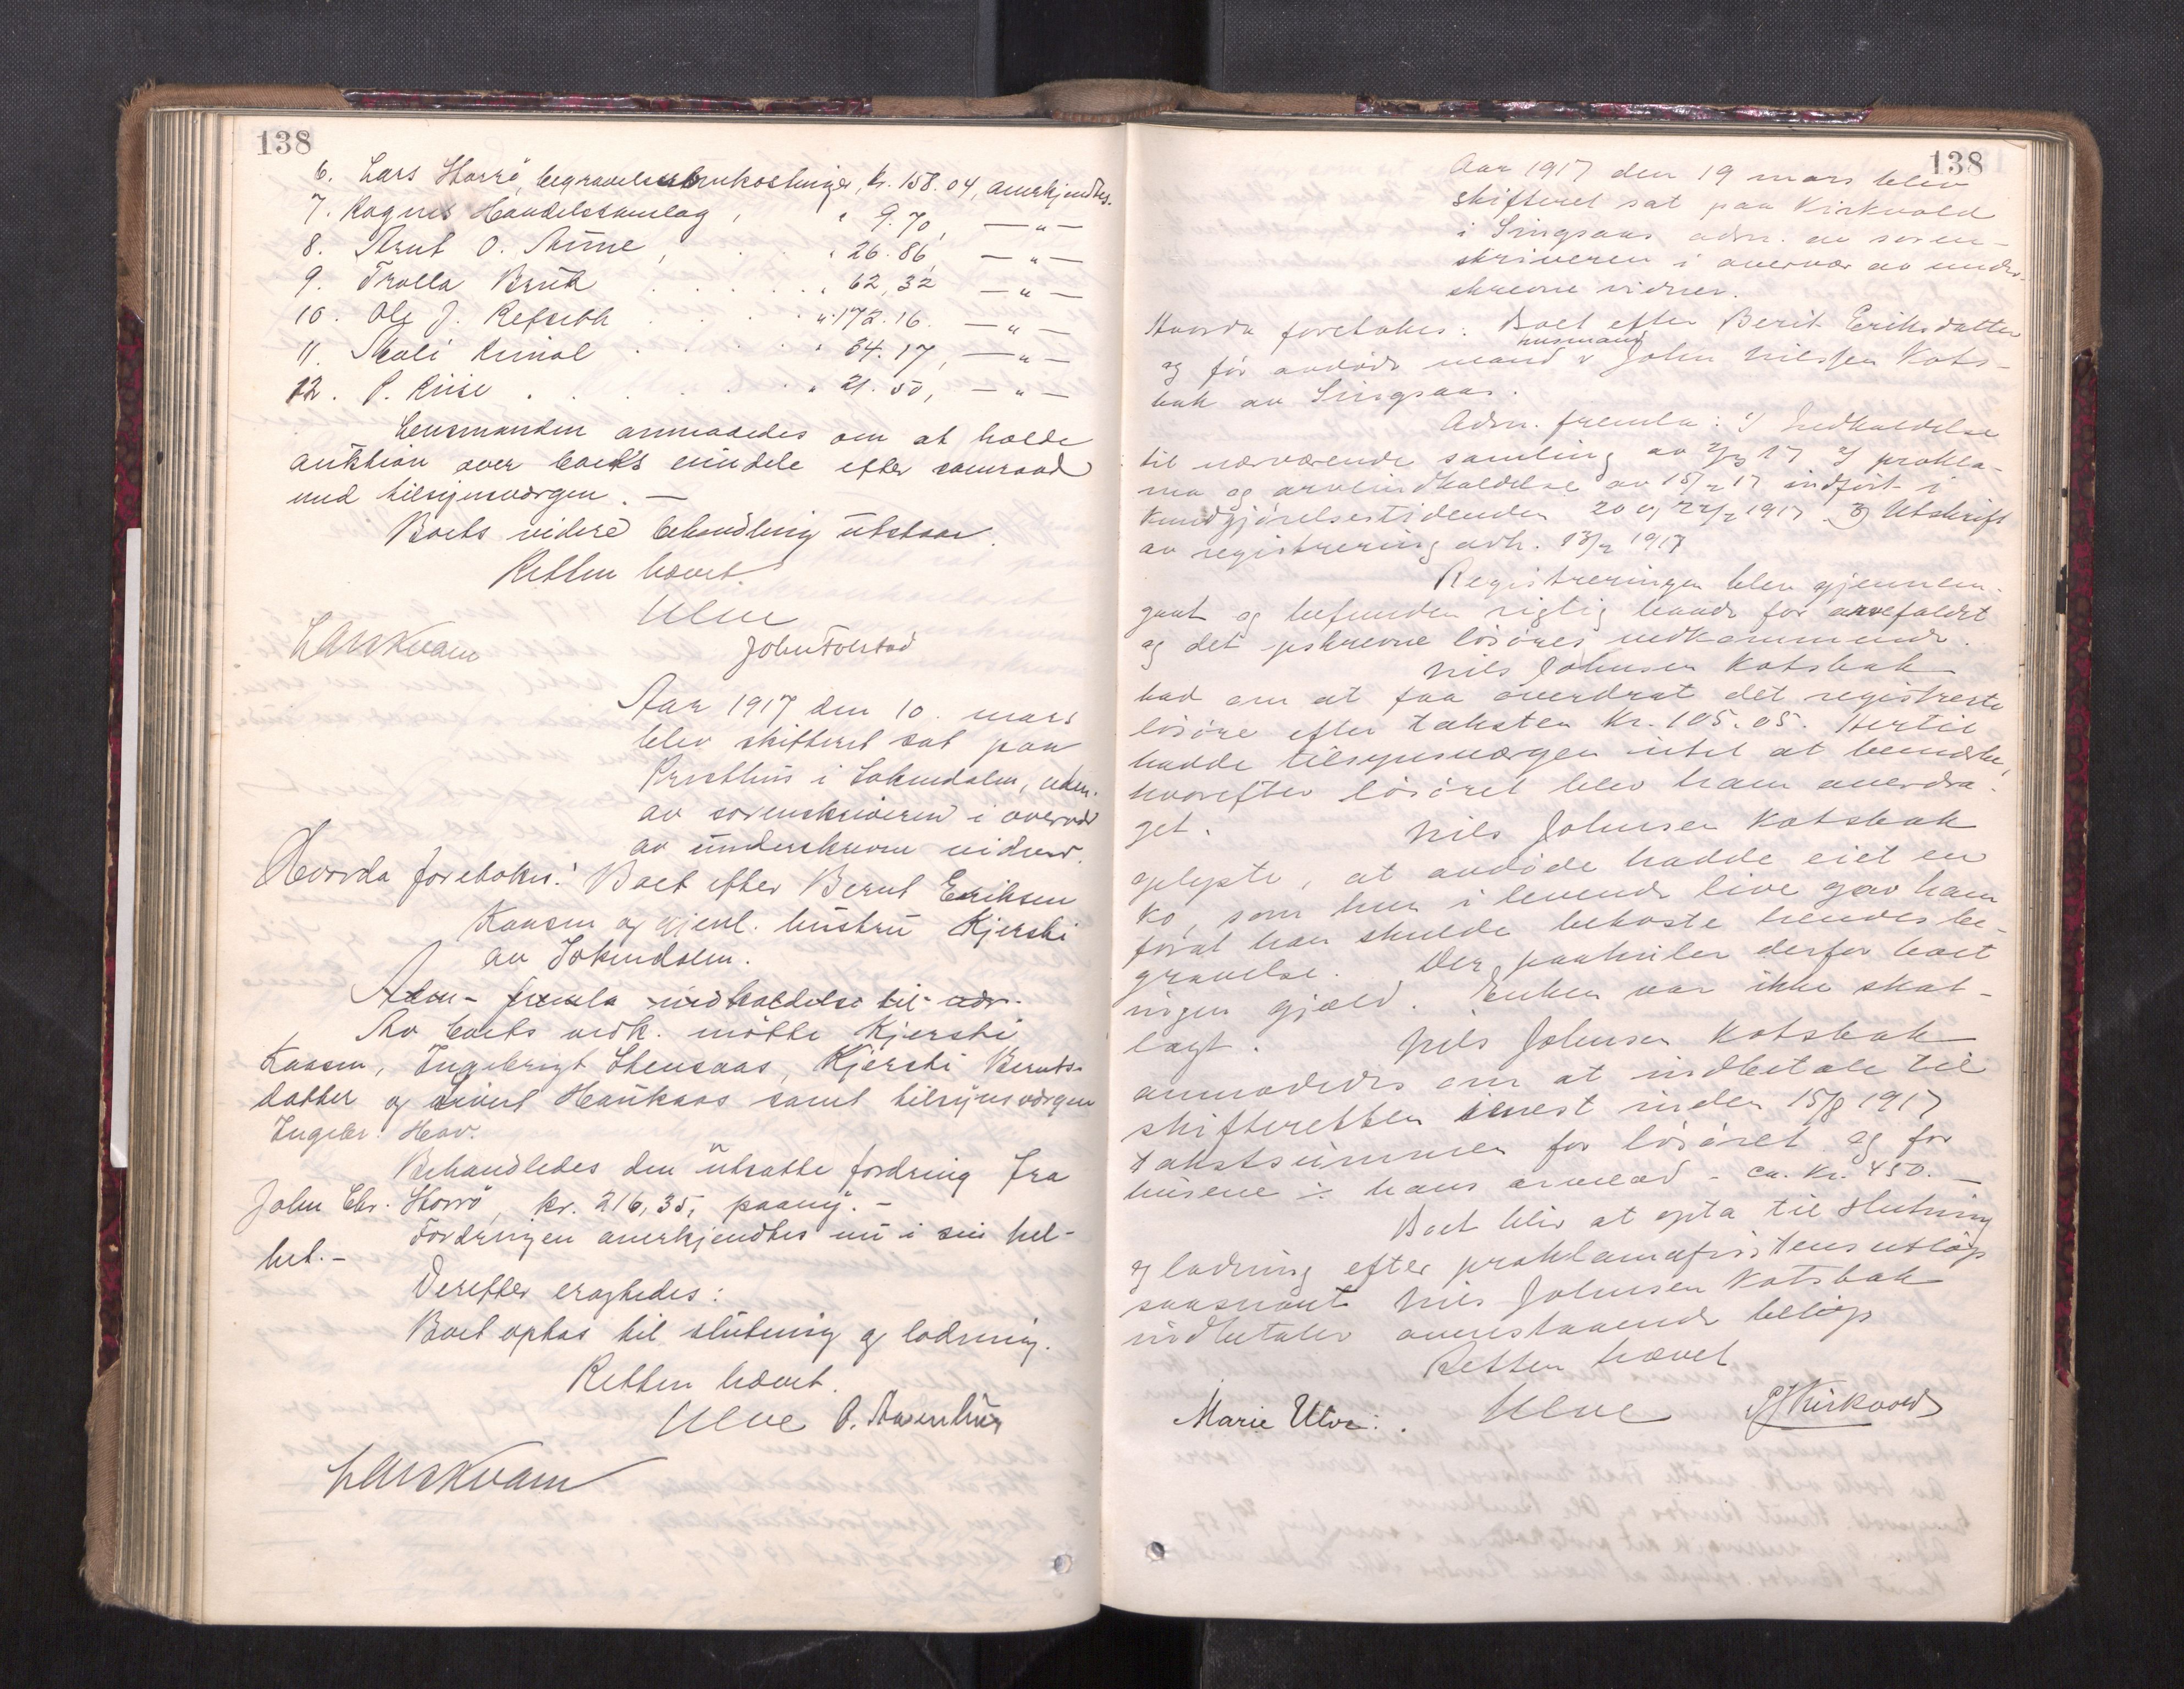 138
6. Lars Horrö, begravelsesomkostninger, kr. 158.04, anerkjendtes.
7. Rognes Handelssamlag, " 9.70, — " —
8. Arnt O. Aune, " 26.86, — " —
9. Trolla Brük " 62,32 — " —
10. Ole J. Refseth " 172.16. — " —
11. Skoli " 64.17, — " —
12. P. Riise " 21.50, — " —
Lensmanden anmodedes om at holde
auktion over boets eiendele efter samraad
med tilsynsværgen. —
Boets videre behandling utstaar.
Retten hævet.
Ulve
Lars Kvam John Folstad
Aar 1917 den 10. mars
blev skifteret sat paa
Presthus i Soknedalen, adm.
av sorenskriveren i overvær
av underskrevne vidner.
Hvorda foretokes: Boet efter Bernt Eriksen
Kaasen og gjenl. hustru Kjersti
av Soknedalen.
Adm. fremla indkaldelse til adv.
Av boets vedk. mötte Kjersti
Kaasen, Ingebrigt Stensaas, Kjersti Bernts-
datter og Sivert Haukaas samt tilsynsværgen
Ingebr. Hov.
Behandledes den utsatte fordring fra
John Chr. Horrö, kr. 216,35, paany. -
Fordringen anerkjendtes nu i sin hel-
het. -
Derefter eragtedes:
Boet optas til slutning og lodning.
Retten hævet.
Ulve O.
Lars Kvam
138
Aar 1917 den 19 mars blev
skifteret sat paa Kirkvold
i Singsaas adm. av soren-
skriveren i overvær av under-
skrevne vidner.
Hvorda foretokes: Boet efter Berit Eriksdatter
husmand
og för avdöde mand v John Nilssen Kots-
bak av Singsaas.
Adm. fremla: 1) Indkaldelse
til nærværende samling av 2/3 17 2) prokla-
ma og arveindkaldelse av 15/2 17 indfört i
Kundgjörelsestidenden 20 og 22/2 1917 3) Utskrift
av registrering avh. 13/2 1917
Registreringen blev gjennem-
gaat og befunden rigtig baade for arvefaldet
og det opskrevne lösöres vedkommende.
Nils Johnsen Kotsbak
bad om at faa overdrat det registrerte
lösöre efter taksten kr. 105.05. Hertil
hadde tilsynsværgen intet at bemerke,
hvorefter lösöret blev ham overdra-
get.
Nils Johnsen Kotsbak
oplyste, at avdöde hadde eiet en
ko, som hun i levende live gav ham
forat han skulde bekoste hendes be-
gravelse. Der paahviler derfor boet
ingen gjæld. Enken var ikke skat-
lagt.
Nils Johnsen Kotsbak
anmodedes om at indbetale til
skifteretten senest inden 15/8 1917
takstsummen for lösöret og for
husene ÷ hans arvelod - ca. kr. 450. —
Boet blir at opta til slutning
og lodning efter proklamafristens utlöp
saasnart Nils Johnsen Kotsbak
indbetaler ovenstaaende belöp
Retten hævet
Marie Ulve. Ulve Kirkvold